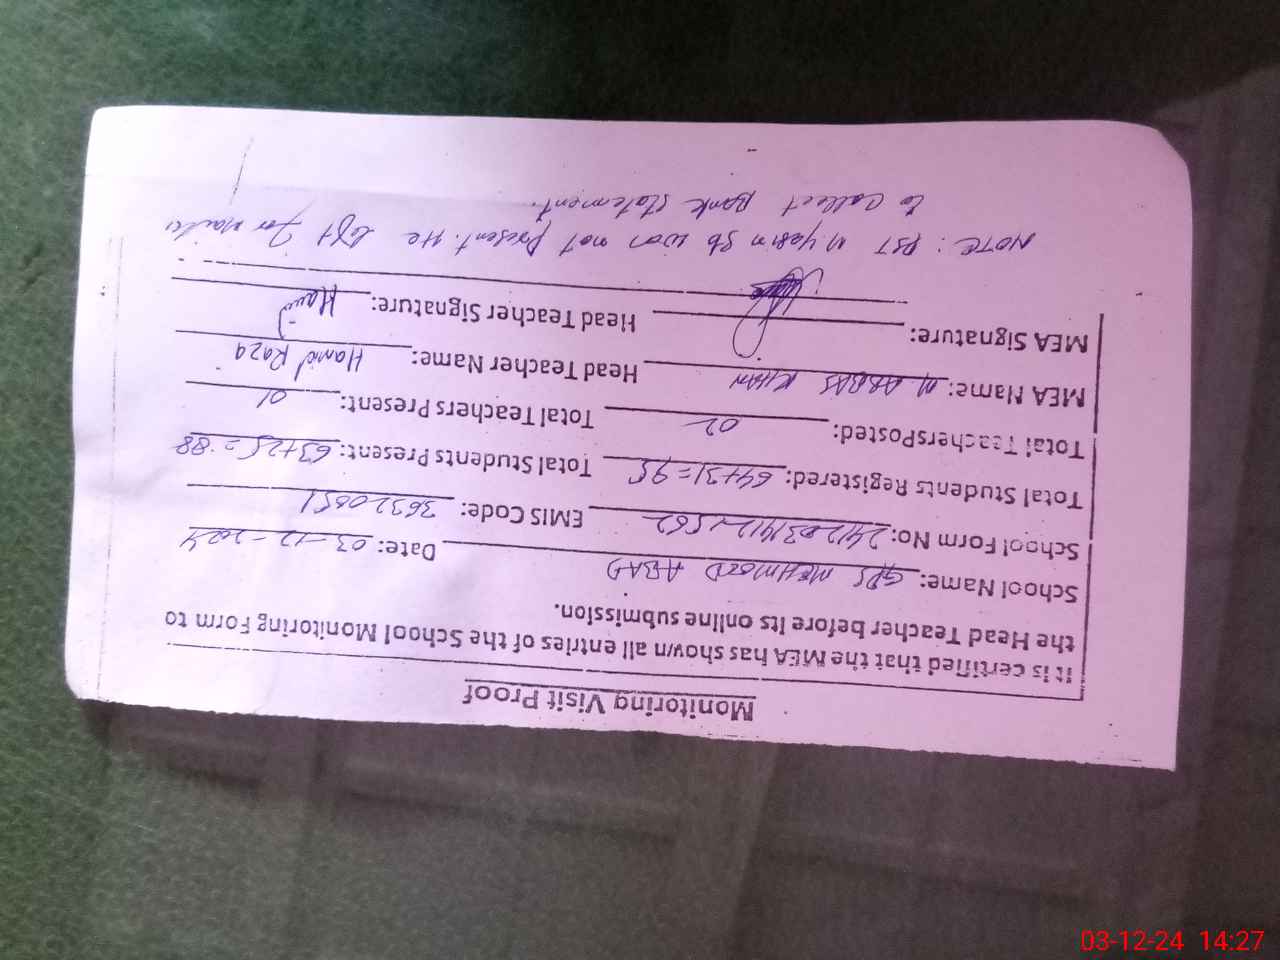 Monitoring Visit Proof
It is certified that the MEA has shown all entries of the School Monitoring Form to
the Head Teacher before its online submission.
School Name: GPS MEHMOOD ABAD Date: 03-12-2024
School Form No: 2412031412 1562 EMIS Code: 36320851
Total Students Registered: 64+31=95 Total Students Present: 63+25=88
Total Teachers Posted: 02 Total Teachers Present: 01
MEA Name: M. ABBAS KHAN Head Teacher Name: Hamid Raza
MEA Signature: Head Teacher Signature: Hamid
NOTE: PST M Yasin Sb was not present. He left for
to collect Bank statement.
03-12-24 14:27